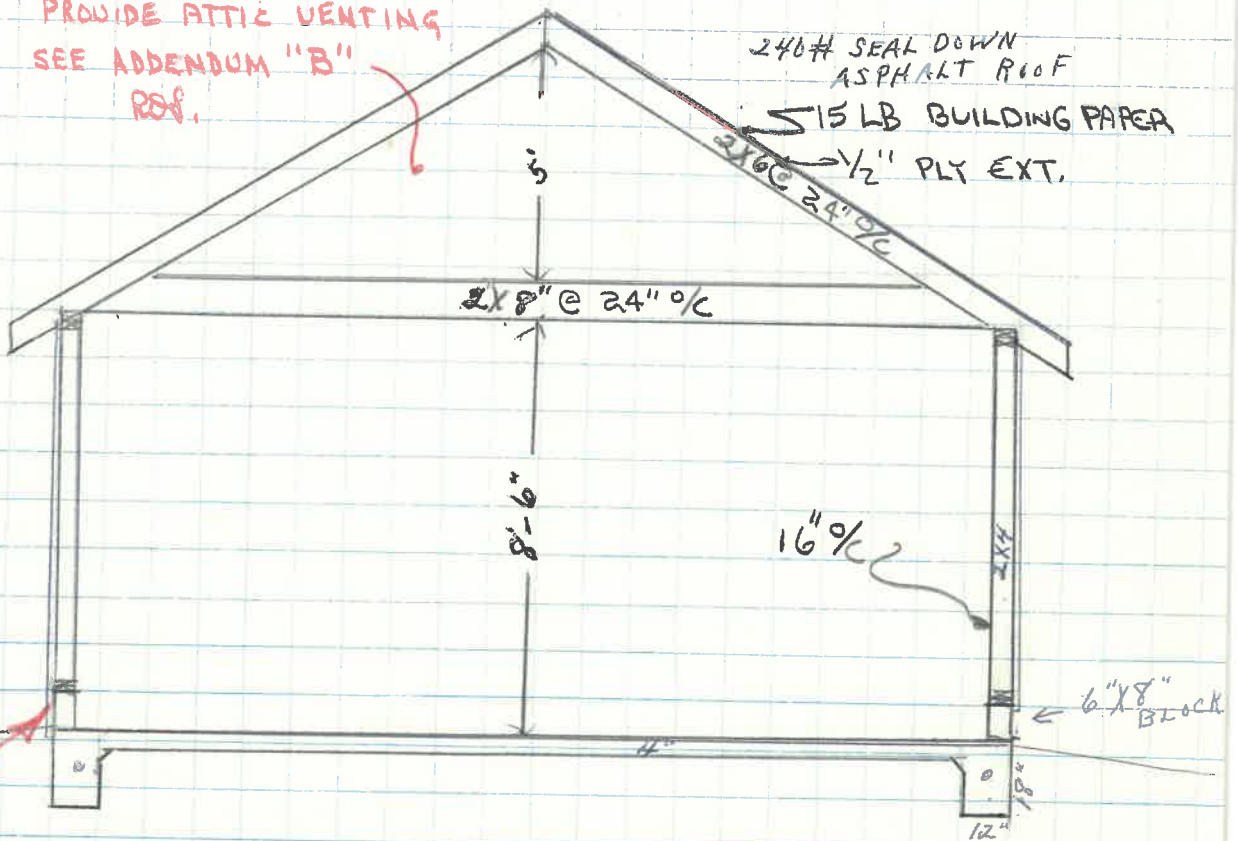 PROVIDE ATTIC VENTING
SEE ADDENDUM "B"
240# SEAL DOWN
ASPHALT ROOF
15 LB BUILDING PAPER
1/2" PLY EXT.
2X6@ 24" O/C
5'
2X8" @ 24" O/C
8'-6"
16" O/C
2X4
6"X8"
BLOCK
4"
18"
12"